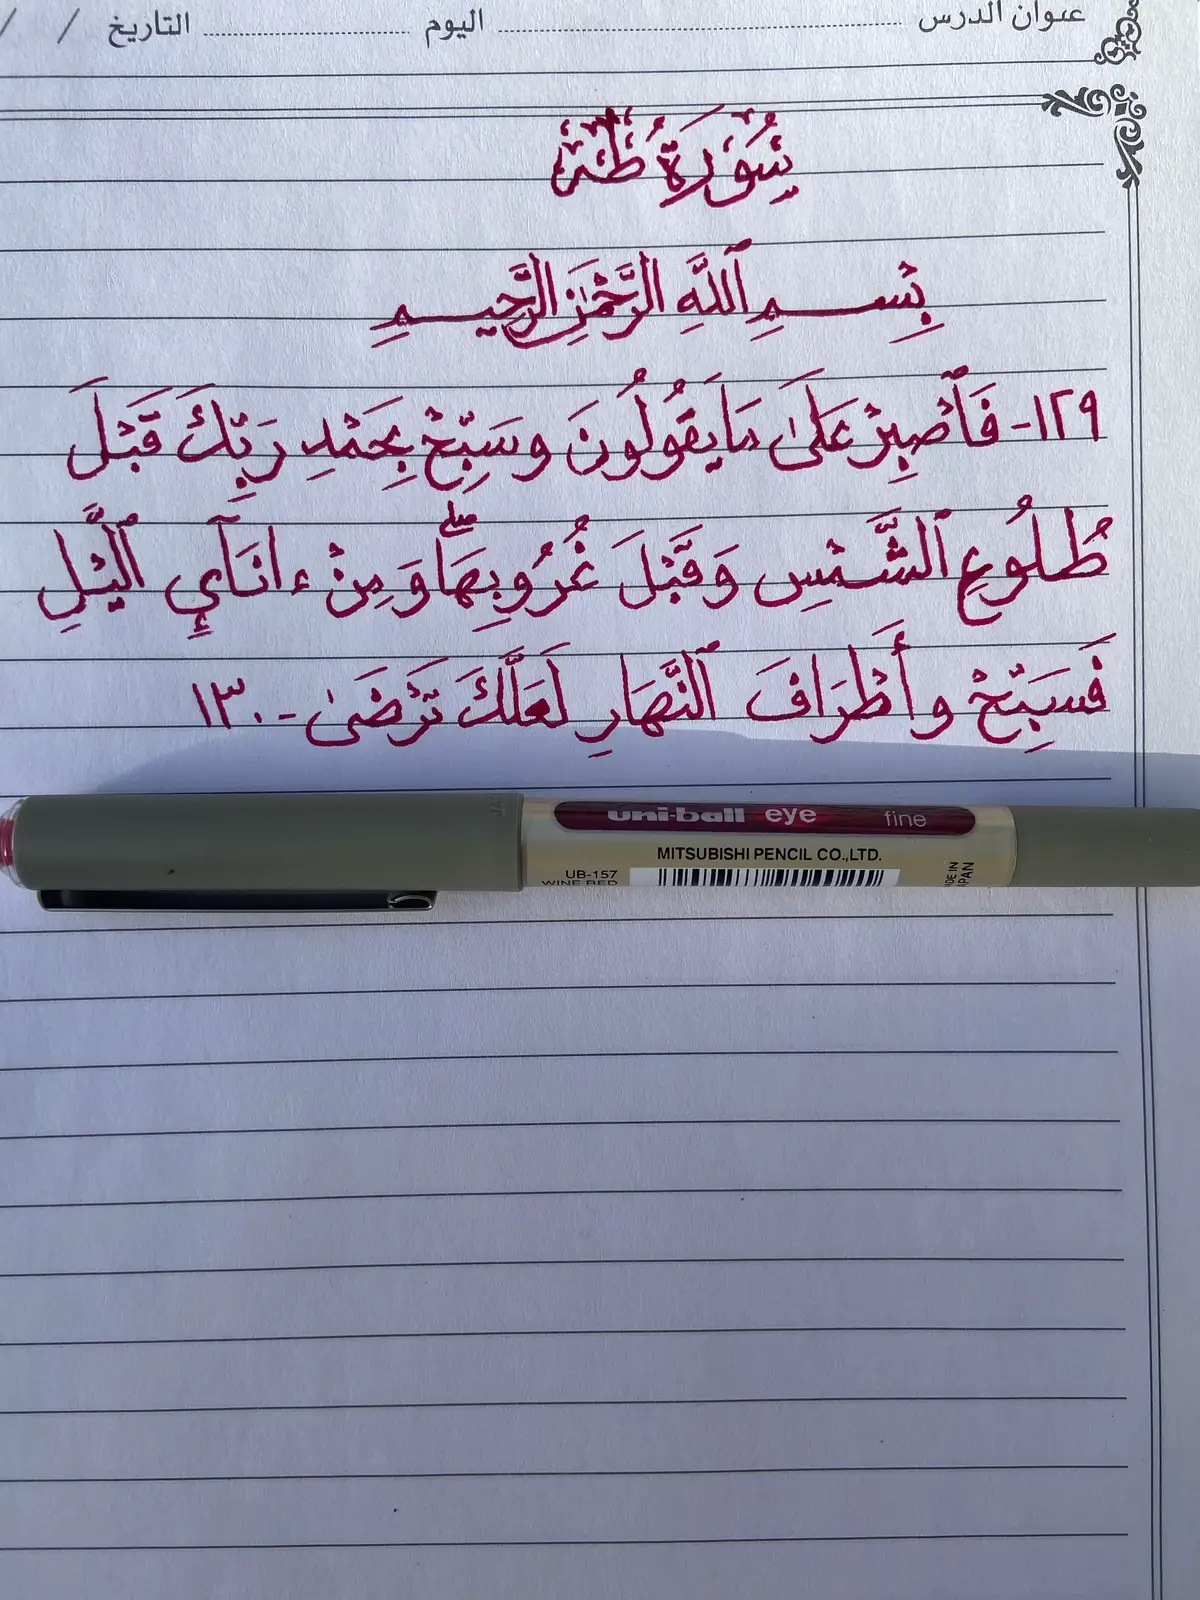 عنوان الدرس ........ اليوم ........ التاريخ / /
سُورَةُ طٰهٰ
بِسْمِ ٱللَّهِ الرَّحْمَٰنِ الرَّحِيمِ
١٢٩- فَٱصْبِرْ عَلَىٰ مَا يَقُولُونَ وَسَبِّحْ بِحَمْدِ رَبِّكَ قَبْلَ
طُلُوعِ ٱلشَّمْسِ وَقَبْلَ غُرُوبِهَا ۖ وَمِنْ ءَانَآئِ ٱلَّيْلِ
فَسَبِّحْ وَأَطْرَافَ ٱلنَّهَارِ لَعَلَّكَ تَرْضَىٰ - ١٣٠
uni-ball eye fine
MITSUBISHI PENCIL CO.,LTD.
UB-157
WINE RED
MADE IN
JAPAN